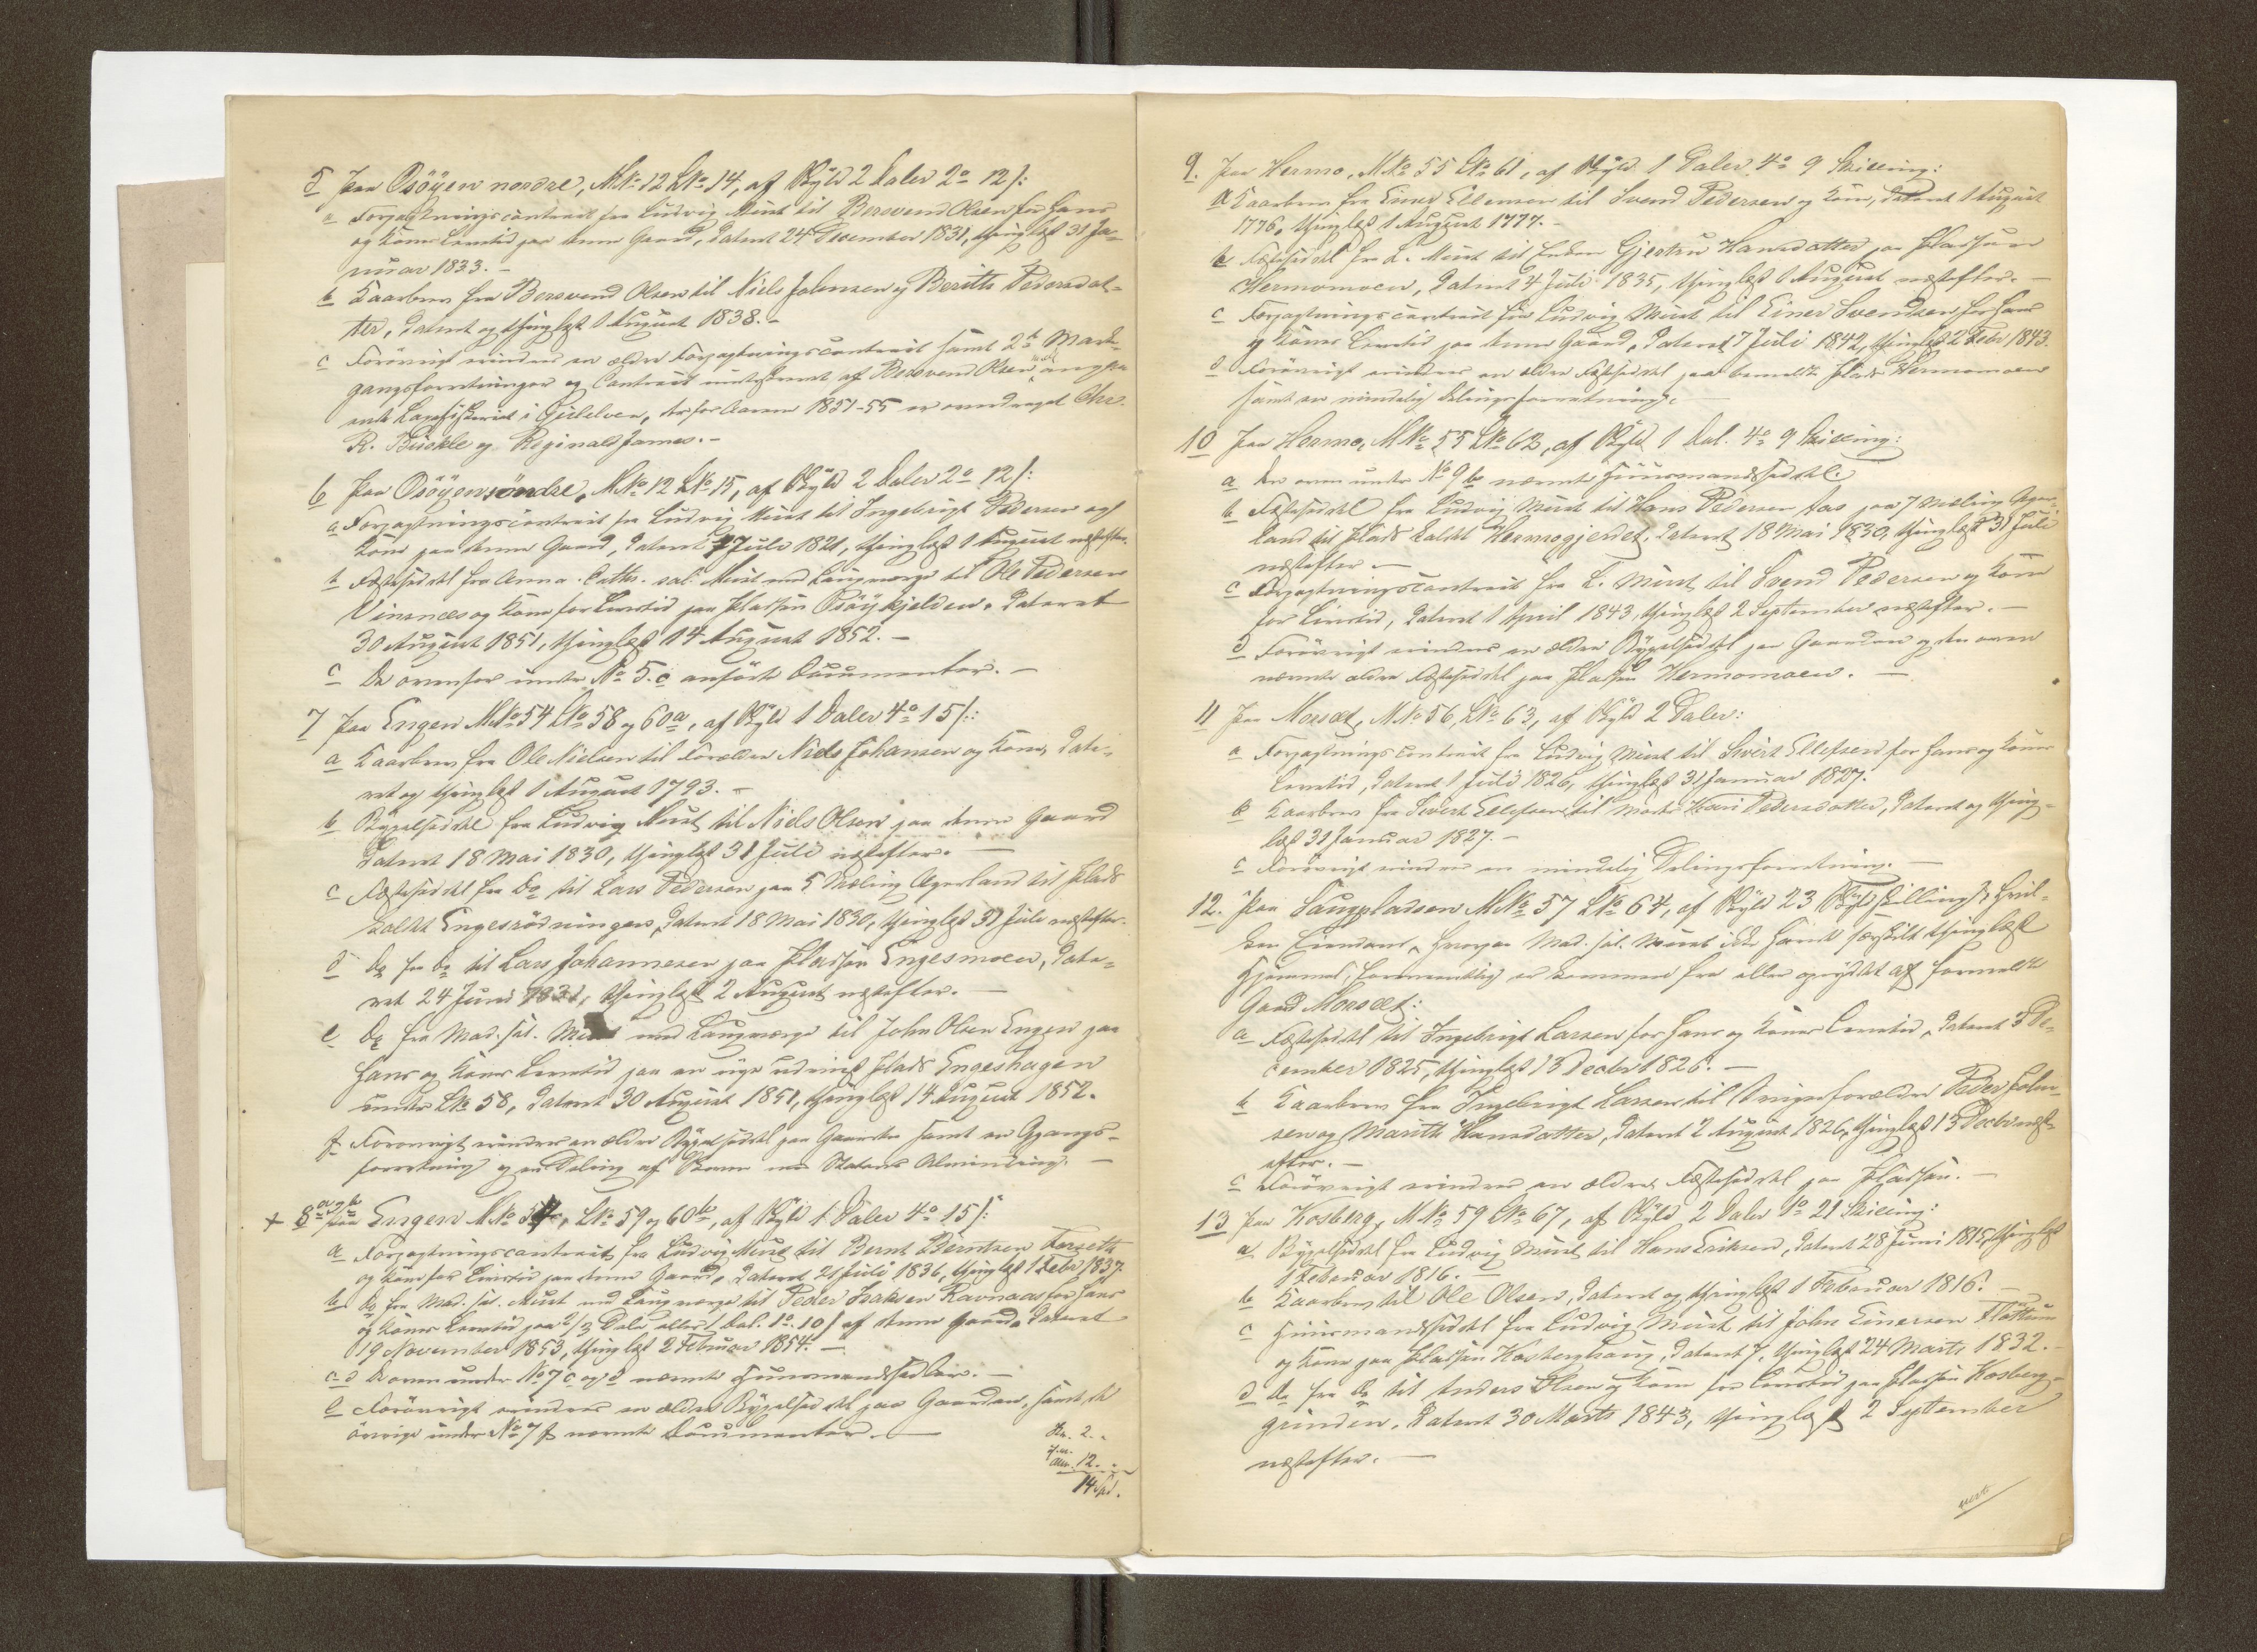 5 paa Osöÿen nordre, M.No 12 L.No 14, af Skÿld 2 Daler 2 o 12 s:
a Forpagtningscontract fra Ludvig Must til Bersvend Olsen for Hans
og Kones Levetid paa denne Gaard, dateret 24 December 1831, thinglæst 31 Ja-
nuar 1833. –
b Kaarbrev fra Bersvend Olsen til Niels Johnsen og Beritte Pedersdat-
ter, dateret og thinglæst 1 August 1838. –
c Forövrigt erindres en ældre Forpagtningscontract samt 2de Mark-
gangsforretninger og Contract underskrevet af Bersvend Olsen med angaa-
ende Laxefiskeriet i Guleelven, der for Aarene 1851-55 er overdraget Chr.
R. Bückle og Reginald James. –
6 paa Osöÿen söndre, M.No 12 L.No 15, af Skÿld 2 Daler 2 o 12 s:
a Forpagtningscontract fra Ludvig Must til Ingebrigt Pedersen og
Kone paa denne Gaard, dateret 7 Juli 1821, thinglæst 1 August næstefter.
b Fæsteseddel fra Anna Cathr. sal. Must med Laugværge til Ole Pedersen
Vinsnes og Kone for Levetid paa Pladsen Osöykjelden, dateret
30 August 1851, thinglæst 14 August 1852. –
c De ovenfor under No 5.c anförte Documenter. –
7 paa Engen M.No 54 L.No 58 og 60a, af Skÿld 1 Daler 4 o 15 s:
a Kaarbrev fra Ole Nielsen til Forældre Niels Johansen og Kone, date-
ret og thinglæst 1 August 1793. –
b Bÿgselseddel fra Ludvig Must til Niels Olsen paa denne Gaard
dateret 18 Mai 1830, thinglæst 31 Juli næstefter. –
c Fæsteseddel fra Do til Lars Pedersen paa 5 Mæling Agerland til Plads
kaldt Engesrödningen, dateret 18 Mai 1830, thinglæst 31 Juli næstefter.
d Do fra Do til Lars Johannesen paa Pladsen Engesmoen, date-
ret 24 Juni 1831, thinglæst 2 August næstefter. –
e Do fra Mad. sal. Must med Laugværge til John Olsen Engen paa
Hans og Kones Levetid paa en nÿe udviist Plads Engeshagen
under L.No 58, dateret 30 August 1851, thinglæst 14 August 1852.
f Forövrigt erindres en ældre Bÿgselseddel paa Gaarden samt en Gangs-
forretning og en Deling af Skoven med Statens Alminding. –
+ 8 a og b paa Engen M.No 54, L.No 59 og 60b, af Skÿld 1 Daler 4 o 15 s:
a Forpagtningscontract fra Ludvig Must til Bernt Berntsen Forseth
og Kone for Levetid paa denne Gaard, dateret 21 Juli 1836, thinglæst 1 Febr 1837.
b Do fra Mad. sal. Must med Laugværge til Peder Isaksen Ravnaas for Hans
og Kones Levetid paa 2/3 Dele eller 1 Dal. 1 o 10 s af denne Gaard, dateret
19 November 1853, thinglæst 2 Februar 1854. –
c-d De oven under No 7 c og d nævnte Huusmandssedler. –
e Forövrigt erindres en ældre Bÿgselseddel paa Gaarden, samt de
övrige under No 7 f nævnte Documenter. –
2. "
12. "
14 Spd.
9. paa Hermo, M.No 55 L.No 61, af Skÿld 1 Daler 4 o 9 Skilling:
a Kaarbrev fra Einer Ellensen til Svend Pedersen og Kone, dateret 1 August
1776, thinglæst 1 August 1777. –
b Fæsteseddel fra L. Must til Enken Gjertru Hansdatter paa Pladsen
Hermomoen, dateret 4 Juli 1835, thinglæst 1 August næstefter. –
c Forpagtningscontract fra Ludvig Must til Einer Svendsen for Hans
og Kones Levetid paa denne Gaard, dateret 7 Juli 1842, thinglæst 2 Febr 1843.
d Forövrigt erindres en ældre Fæsteseddel paa bemeldte Plads Hermomoen
samt en mindelig Delingsforretning. –
10 paa Hermo, M.No 55 L.No 62, af Skÿld 1 Dal. 4 o 9 Skilling:
a Den oven under No 9 b nævnte Huusmandsseddel.
b Fæsteseddel fra Ludvig Must til Hans Pedersen Aas paa 7 Mæling Ager-
land til Plads kaldet Hermogjerdet, dateret 18 Mai 1830, thinglæst 31 Juli
næstefter. –
c Forpagtningscontract fra L. Must til Svend Pedersen og Kone
for Levetid, dateret 1 April 1843, thinglæst 2 September næstefter. –
d Forövrigt erindres en ældre Bÿgselseddel paa Gaarden og den oven
nævnte ældre Fæsteseddel paa Pladsen Hermomoen. –
11 paa Morsæt, M.No 56, L.No 63, af Skÿld 2 Daler:
a Forpagtningscontract fra Ludvig Must til Sivert Ellefsen for Hans og Kones
Levetid, dateret 1 Juli 1826, thinglæst 31 Januar 1827.
b Kaarbrev fra Sivert Ellefsen til Moder Kari Pedersdatter, dateret og thing-
læst 31 Januar 1827. –
c Forövrigt erindres en mindelig Delingsforretning. –
12. paa Saugpladsen M.No 57 L.No 64, af Skÿld 23 Skilling, hvil-
ken Eiendom, hvorpaa Mad. sal. Must ikke havde særskilt thinglæst
Hjemmel, formeentlig er kommen fra eller oprÿddet af formeldte
Gaard Morsæt:
a Fæsteseddel til Ingebrigt Larsen for Hans og Kones Levetid, dateret 3 De-
cember 1825, thinglæst 13 Decbr 1826. –
b Kaarbrev fra Ingebrigt Larsen til Svigerforældre Peder John-
sen og Marith Hansdatter, dateret 2 August 1826, thinglæst 13 Decbr næst-
efter. –
c Forövrigt erindres en ældre Fæsteseddel paa Pladsen. –
13 paa Kosberg, M.No 59 L.No 67, af Skÿld 2 Daler 1 o 21 Skilling:
a Bÿgselseddel fra Ludvig Must til Hans Eriksen, dateret 28 Juni 1815, thinglæst
1 Februar 1816. –
b Kaarbrev til Ole Olsen, dateret og thinglæst 1 Februar 1816. –
c Huusmandsseddel fra Ludvig Must til John Einersen Flöttum
og Kone paa Pladsen Kosberghaug, dateret 7, thinglæst 24 Marts 1832. –
d Do fra Do til Anders Olsen og Kone for Levetid paa Pladsen Kosberg-
grinden, dateret 30 Marts 1843, thinglæst 2 September
næstefter. –